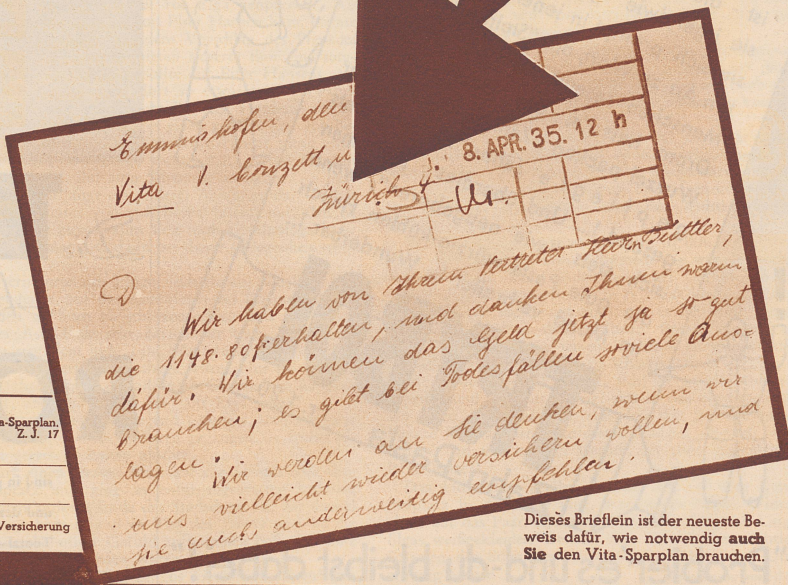 Emmishofen, den
Vita V. Conzett u
Zürich 4
8. APR. 35. 12 h
D
Wir haben von Ihrem Vertreter Herrn Büttler,
die 1148.80 fr erhalten, und danken Ihnen warm
dafür. Wir können das Geld jetzt ja so gut
brauchen; es gibt bei Todesfällen soviele Aus-
lagen.
Wir werden an Sie denken, wenn wir
uns vielleicht wieder versichern wollen, und
sie auch anderweitig empfehlen.
a-Sparplan.
Z. J. 17
Versicherung
Dieses Brieflein ist der neueste Be-
weis dafür, wie notwendig auch
Sie den Vita-Sparplan brauchen.